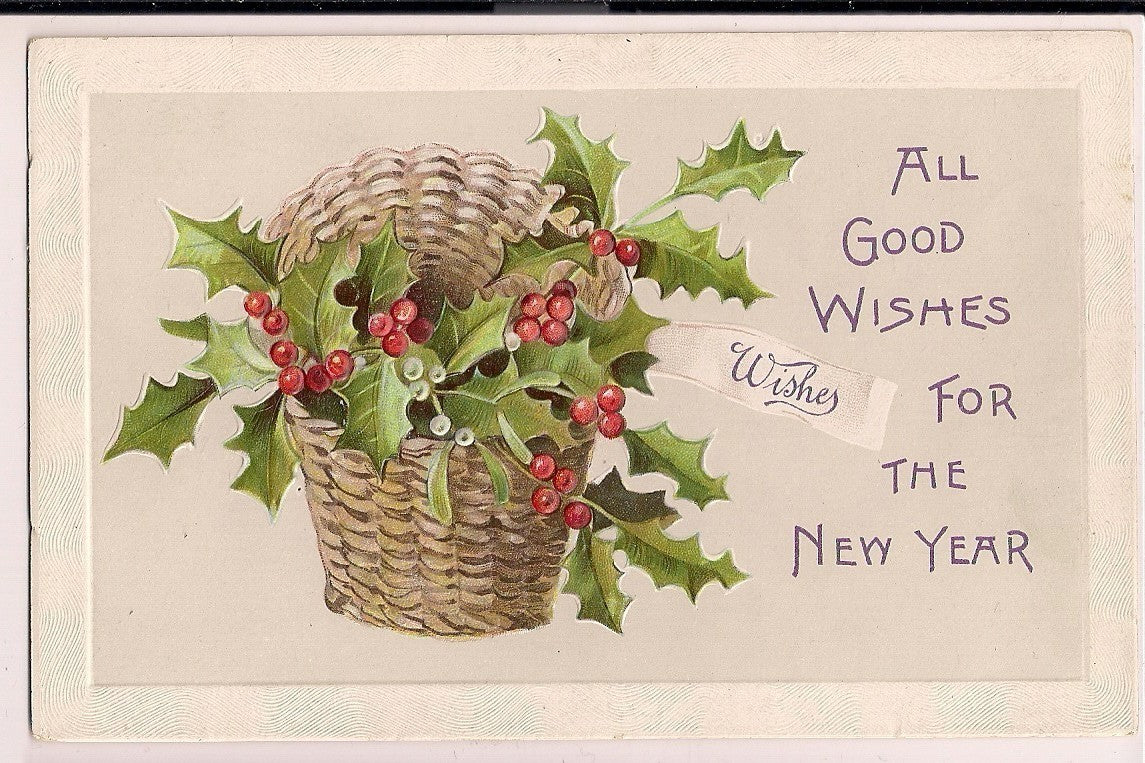 ALL
GOOD
WISHES
FOR
THE
NEW YEAR
Wishes